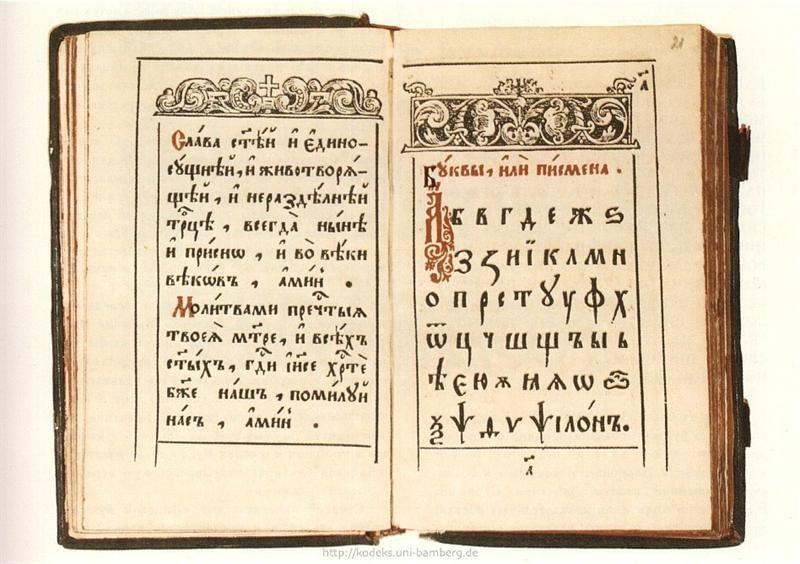 Сла́ва ст҃ѣ́й и҆ є҆дино-
су́щнѣй, и҆ животворѧ́-
щѣй, и҆ нераздѣ́лнѣй
трⷪ҇цѣ, всегда̀ ны́нѣ
и҆ при́снѡ, и҆ во̀ вѣ́ки
вѣкѡ́въ, а҆ми́нь.
Моли́твами пречⷭ҇тыѧ
твоеѧ̀ мт҃ре, и҆ всѣ́хъ
ст҃ы́хъ, гд҃и і҆и҃се хрⷭ҇тѐ
бж҃е на́шъ, поми́луй
на́съ, а҆ми́нь.
21
а҃
Бу́квы, и҆лѝ пи́смена.
А б в г д е ж ѕ
з ꙁ и ї к л м н
о п р с т ꙋ у ф х
ѿ ц ч ш щ ъ ы ь
ѣ є ю ѫ ꙗ ѧ ѡ ѽ
ѯ ѱ ѳ ѵ ѱіло́нъ.
а҃
http://kodeks.uni-bamberg.de